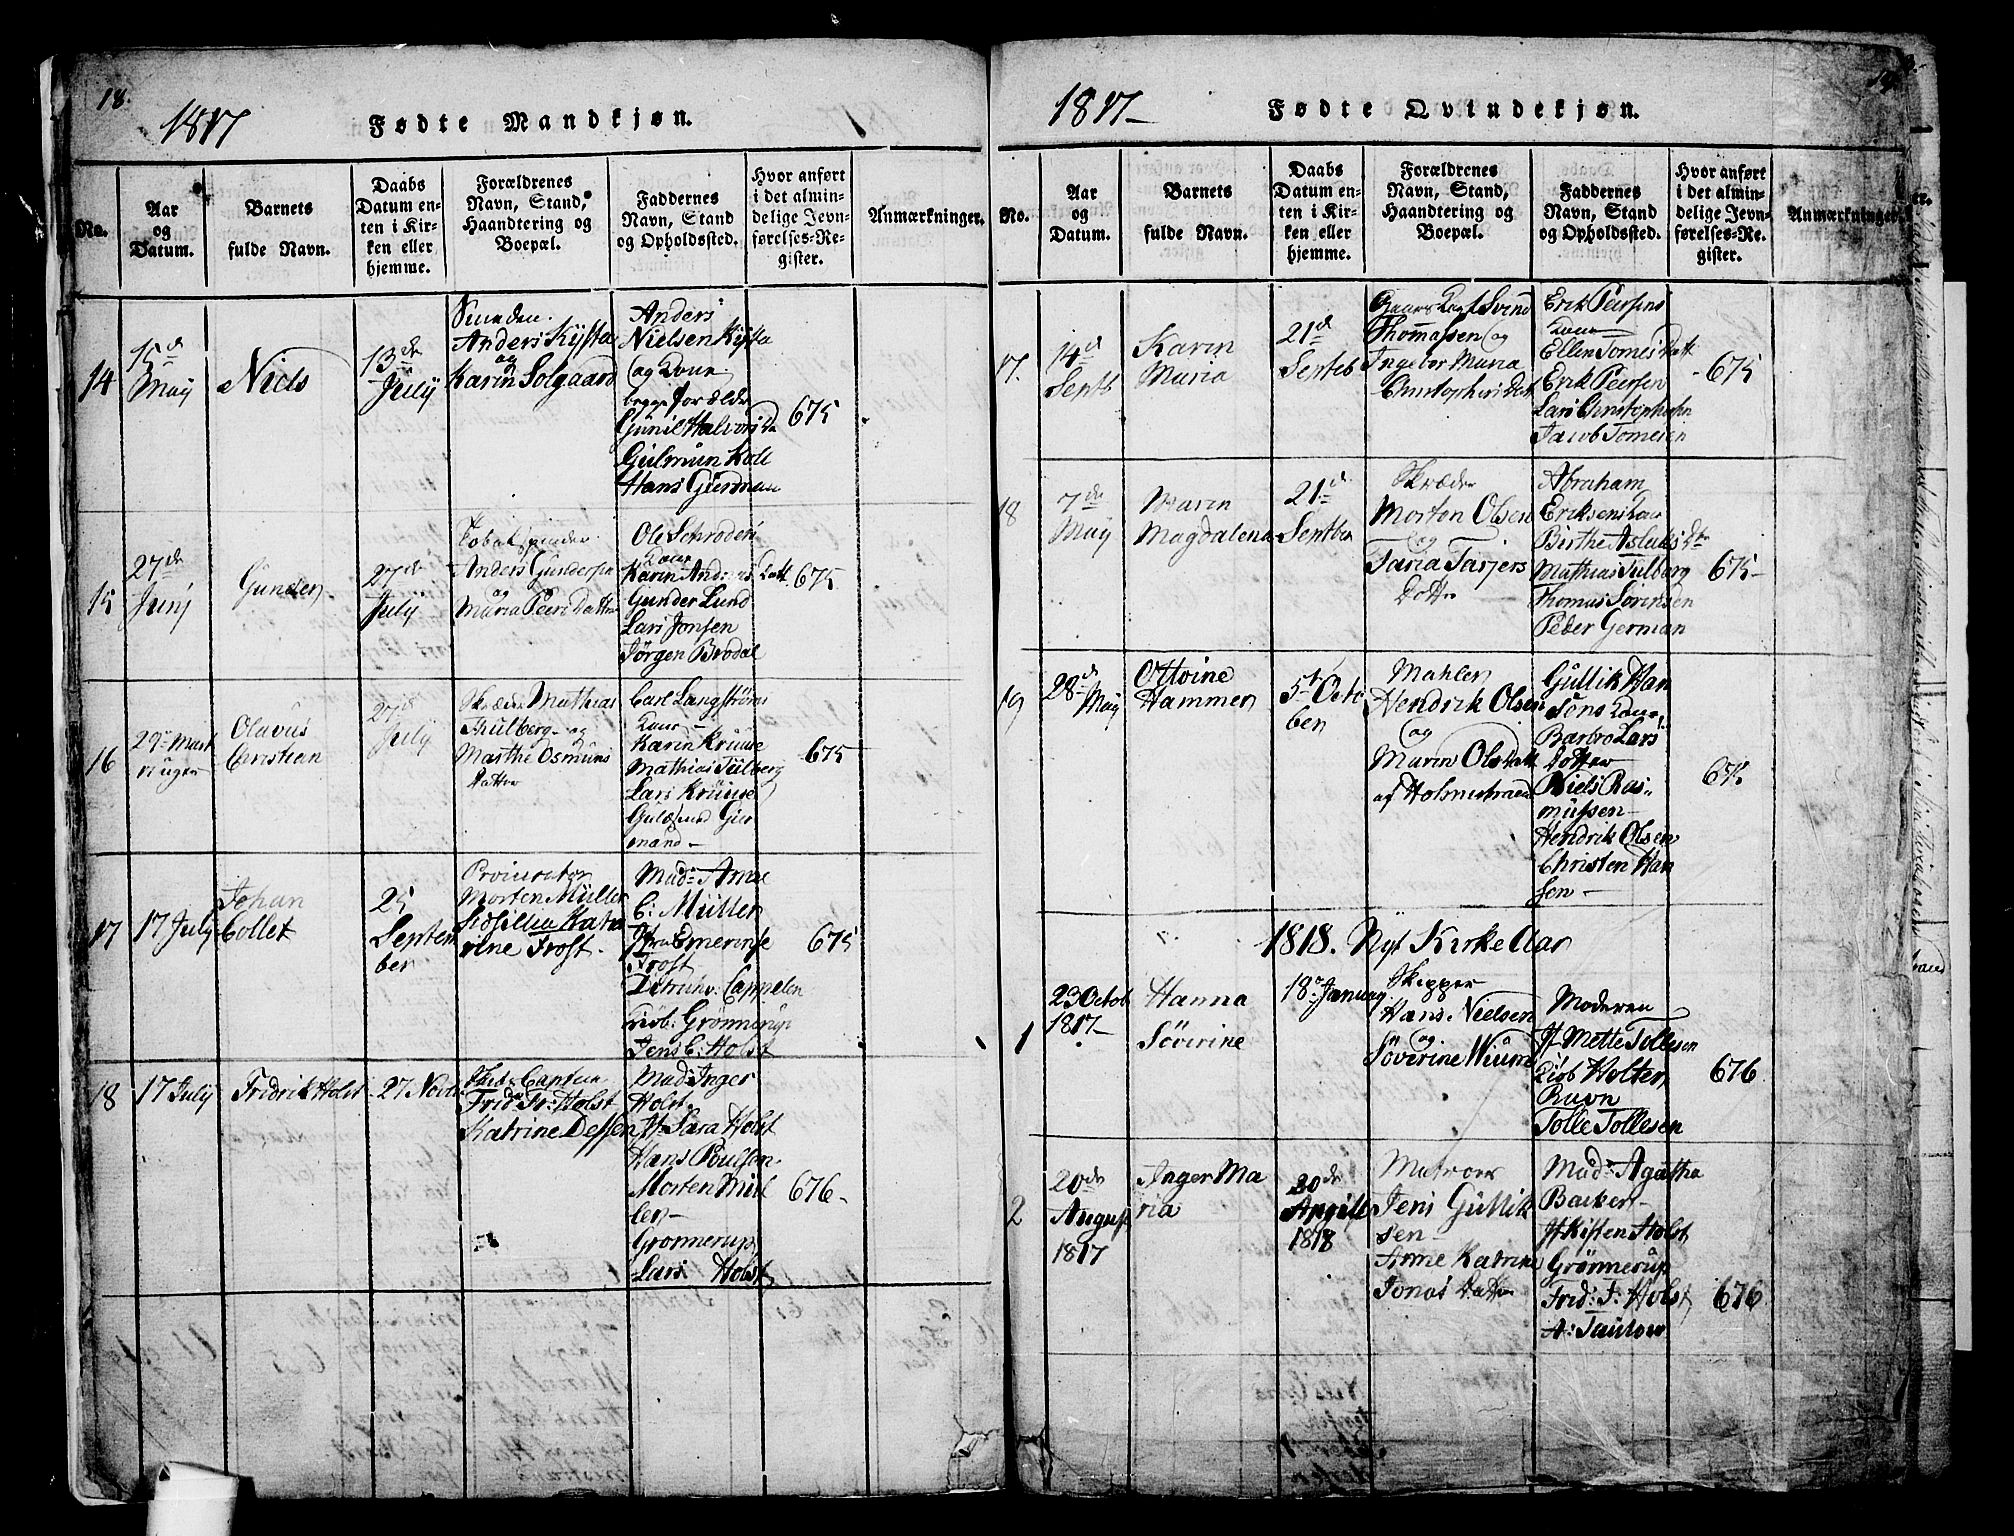 18.
1817
Fødte Mandkjøn.
No.
Aar
og
Datum.
Barnets
fulde Navn.
Daabs
Datum en-
ten i Kir-
ken eller
hjemme.
Forældrenes
Navn, Stand,
Haandtering og
Boepæl.
Faddernes
Navn, Stand
og Opholdssted.
Hvor anført
i det almin-
delige Jevn-
førelses-Re-
gister.
Anmærkninger.
14
15d
May
Niels
13de
July
Anders Kysta
og
Karin Solgaard
Anders
Nielsen Kysta
og Kone
begge forældre
Gunil Halvorsda
Gulmun Koll
Hans Gurdman
675
15
27de
Junj
Gunder
27de
July
Tobakspinder
Anders Gundersen
og
Maria Peers Datter
Ole Schroders
Kone
Karin Anders Datt.
Gunder Lund
Lars Jonsen
Jørgen Brodal
675
16
29de Mart
Olavus
Christian
27d
July
Skræder Mathias
Thulberg og
Marthe Osmuns
Datter
Carl Langstrøms
Kone
Karin Kruuse
Mathias Tulberg
Lars Kruuse
675
17
17 July
Johan
Collet
25
Septem
ber
Procurator
Morten Müller
Sidsillia Katri
rine Frost
Mad: Anne
C: Müller
Jfr: Emerense
Frost
Cappelen
Grønnerup
Jens C: Holst
675
18
17 July
Fridrik Holst
27 Novbr
Skibs Captein
Frid: Fr: Holst
Katrine Dessen
Mad: Inger
Holst
Jf: Sara Holst
Hans Poulsen
Morten Mül
ler
Grønnerup
Lars Holst
676
19
1817
Fødte Qvindekjøn.
No.
Aar
og
Datum.
Barnets
fulde Navn.
Daabs
Datum en-
ten i Kir-
ken eller
hjemme.
Forældrenes
Navn, Stand,
Haandtering og
Boepæl.
Faddernes
Navn, Stand
og Opholdssted.
Hvor anført
i det almin-
delige Jevn-
førelses-Re-
gister.
Anmærkninger.
17.
14d
Septb
Karin
Maria
21d
Septeb
Svend
Thomassen og
Ingebor Maria
Christophers Dat
Erik Peersens
Kone
Ellen Tomes Datt
Erik Peersen
Lars Christophersen
Jacob Tomesen
675
18
7de
May
Maren
Magdalena
21d
Septbr
Skræder
Morten Olsen
og
Taria Tarjers
Dotter
Abraham
Eriksens Kone
Birthe Aslaks Dtr
Mathias Tulberg
Thomas Sørensen
Peder German
675
19
28d
May
Ottoine
Hammer
5t Octo
ber
Mahler
Hendrik Olsen
og
Maren Olsdatt
af Holmestrand
Gullik Han
sons Kone
Barbro Lars
Dotter
Niels Ras-
mussen
Hendrik Olsen
Christen Han
sen
675
1818. Nyt Kirke Aar
1
23 Octob
1817
Hanna
Sövirine
18de January
Skipper
Hans Nielsen
og
Soverine Wium
Moderen
Jf Mette Tollesen
Jacob Holter
Ravn
Tolle Tollesen
676
2
20de
August
1817
Inger Ma
ria
20de
Aprill
1818
Matroes
Jens Gullik
sen
Anne Katrine
Jonas Datter
Mad: Agatha
Backer
Jf Kisten Holst
Grønnerup
Frid: F: Holst
A: Taulow
676